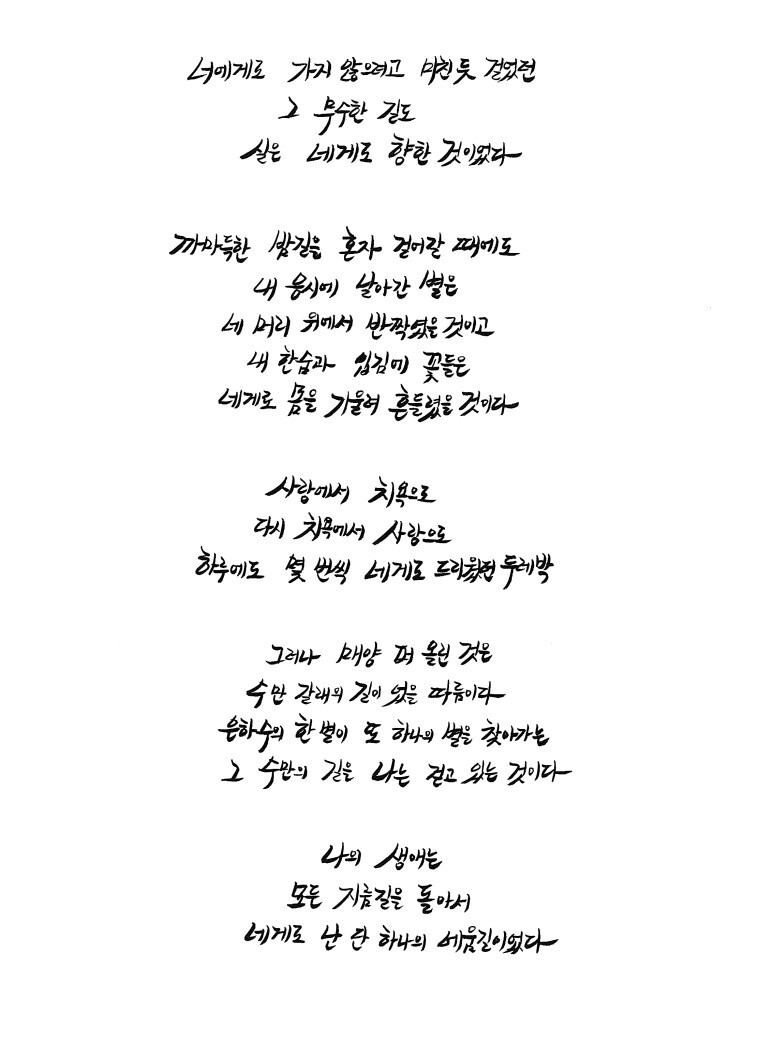 너에게로 가지 않으려고 미친 듯 걸었던
그 무수한 길도
실은 네게로 향한 것이었다
까마득한 밤길을 혼자 걸어갈 때에도
내 응시에 날아간 별은
네 머리 위에서 반짝였을 것이고
내 한숨과 입김에 꽃들은
네게로 몸을 기울여 흔들렸을 것이다
사랑에서 치욕으로
다시 치욕에서 사랑으로
하루에도 몇 번씩 네게로 드리웠던 두레박
그러나 매양 퍼 올린 것은
수만 갈래의 길이었을 따름이다
은하수의 한 별이 또 하나의 별을 찾아가는
그 수만의 길을 나는 걷고 있는 것이다
나의 생애는
모든 지름길을 돌아서
네게로 난 단 하나의 에움길이었다